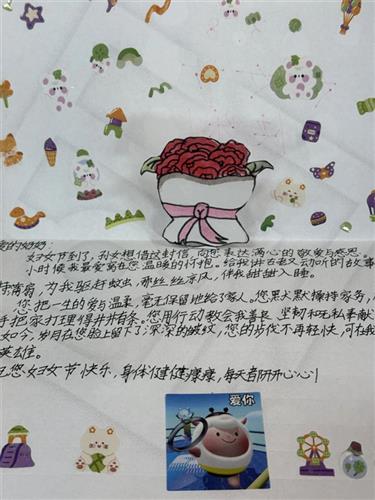 爱的奶奶:
妇女节到了,孙女想借这封信,向您表达满心的敬爱与感恩。
小时候我最爱窝在您温暖的怀抱。给我讲古老又动听的故事
蒲扇,为我驱赶蚊虫,那丝丝凉风,伴我甜甜入睡。
您把一生的爱与温柔,毫无保留地给了家人。您默默操持家务,
手把家打理得井井有条。您用行动教会我善良、坚韧和无私奉献
如今,岁月在您脸上留下了深深的皱纹,您的步伐不再轻快,可在我
英雄。
您妇女节快乐,身体健健康康,每天都开开心心!
爱你